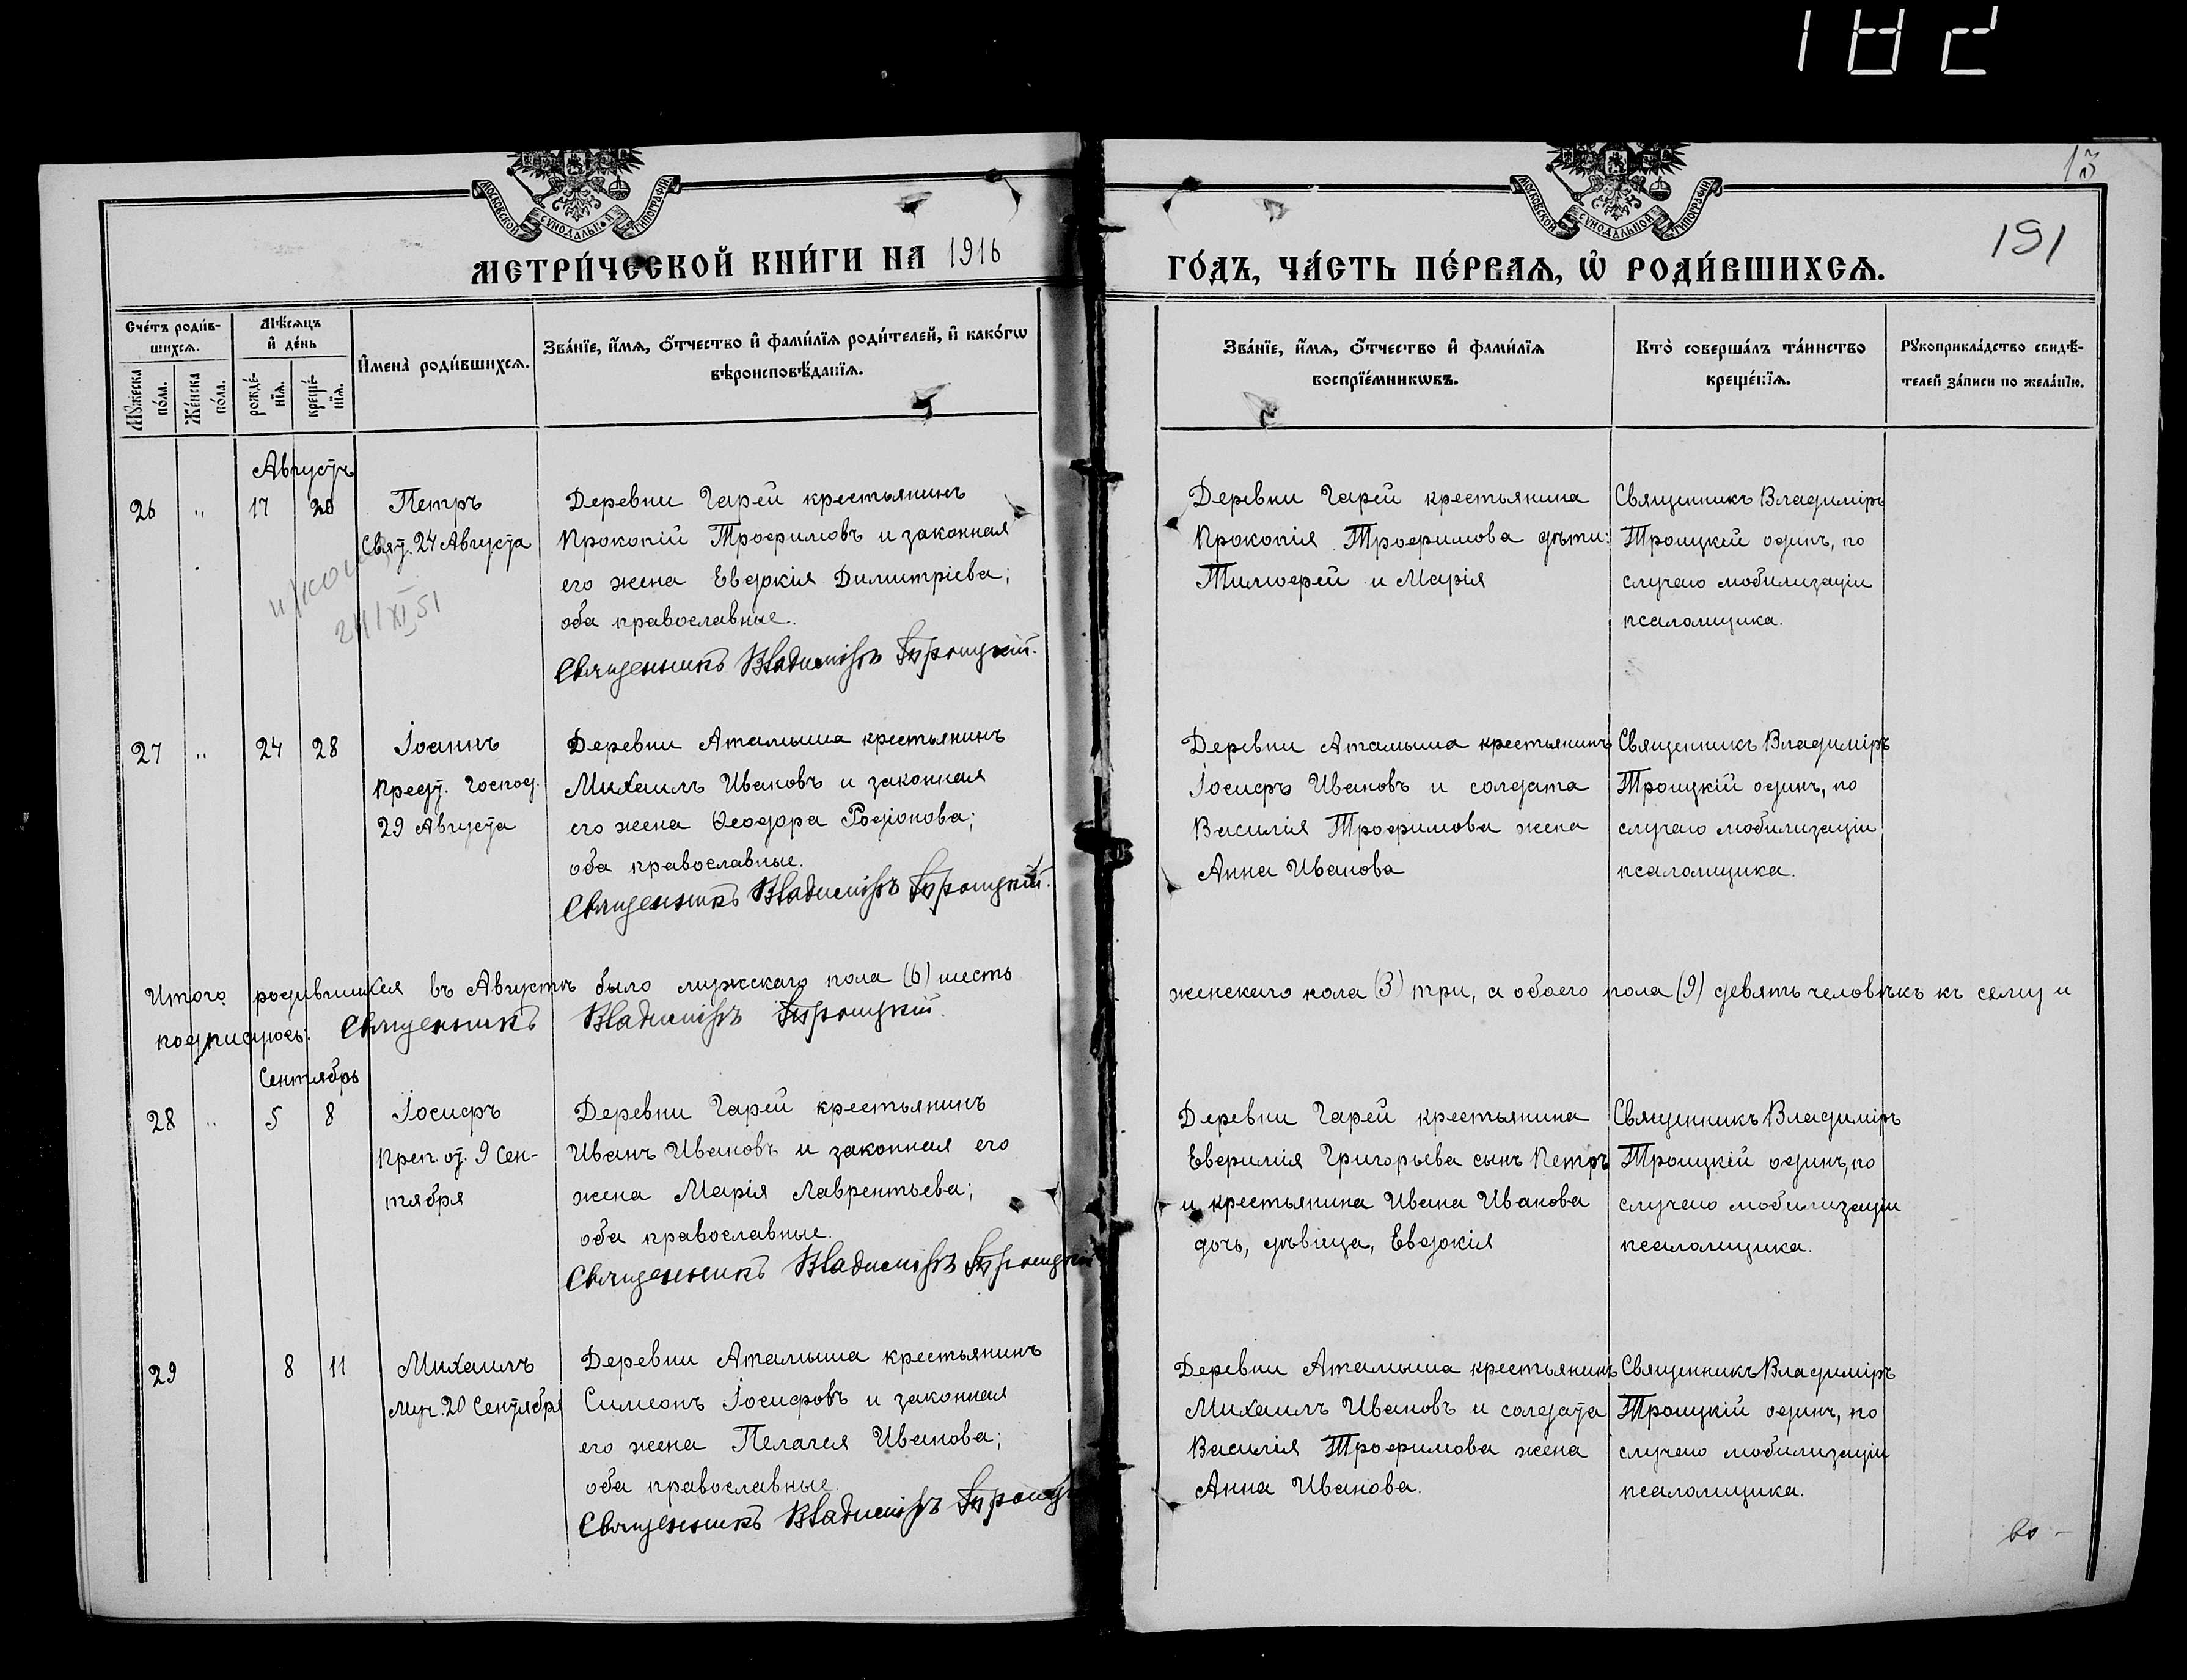 182
13
191
МОСКОВСКОЙ СѴНОДАЛЬНОЙ ТИПОГРАФІИ
МОСКОВСКОЙ СѴНОДАЛЬНОЙ ТИПОГРАФІИ
МЕТРИ́ЧЕСКОЙ КНИ́ГИ НА 1916
ГО́ДЪ, ЧА́СТЬ ПЕ́РВАѦ, Ѡ҆ РОДИ́ВШИХСѦ.
Сче́тъ роди́в-
шихсѧ.
Мꙋ́жеска
по́ла.
Же́нска
по́ла.
Мѣ́сѧцъ
и҆ де́нь
рожде́-
нїѧ.
креще́-
нїѧ.
И҆мена̀ роди́вшихсѧ.
Зва́нїе, и҆́мѧ, ѻ҆́тчество и҆ фами́лїѧ роди́телей, и҆ како́гѡ
вѣроисповѣ́данїѧ.
Зва́нїе, и҆́мѧ, ѻ҆́тчество и҆ фами́лїѧ
воспрїе́мникѡвъ.
Кто̀ соверша́лъ та́инство
креще́нїѧ.
Рꙋкоприкла́дство свидѣ́-
телей за́писи по жела́нїю.
Августъ
26 " 17 20
Петръ
Свят. 24 Августа
24/XI 51
Деревни Гарей крестьянинъ
Прокопій Трофимовъ и законная
его жена Евдокія Димитріева;
оба православные.
Священникъ Владиміръ Троицкій.
Деревни Гарей крестьянина
Прокопія Трофимова дѣти:
Тимофей и Марія
Священникъ Владиміръ
Троицкій одинъ, по
случаю мобилизаціи
псаломщика.
27 " 24 28
Іоаннъ
Предт. Господ.
29 Августа
Деревни Атамыша крестьянинъ
Михаилъ Ивановъ и законная
его жена Ѳеодора Родіонова;
оба православные.
Священникъ Владиміръ Троицкій.
Деревни Атамыша крестьянинъ
Іосифъ Ивановъ и солдата
Василія Трофимова жена
Анна Иванова
Священникъ Владиміръ
Троицкій одинъ, по
случаю мобилизаціи
псаломщика.
Итого родившихся въ Августѣ было мужскаго пола (6) шесть
женскаго пола (3) три, а обоего пола (9) девять человѣкъ къ сему и
подписуюсь: Священникъ Владиміръ Троицкій.
Сентябрь
28 " 5 8
Іосифъ
Преп. от. 9 Сен-
тября
Деревни Гарей крестьянинъ
Иванъ Ивановъ и законная его
жена Марія Лаврентьева;
оба православные.
Священникъ Владиміръ Троицкій
Деревни Гарей крестьянина
Евфимія Григорьева сынъ Петръ
и крестьянина Ивана Иванова
дочь, дѣвица, Евдокія
Священникъ Владиміръ
Троицкій одинъ, по
случаю мобилизаціи
псаломщика.
29 8 11
Михаилъ
Муч. 20 Сентября
Деревни Атамыша крестьянинъ
Симеонъ Іосифовъ и законная
его жена Пелагея Иванова;
оба православные.
Священникъ Владиміръ Троицк
Деревни Атамыша крестьянинъ
Михаилъ Ивановъ и солдата
Василія Трофимова жена
Анна Иванова.
Священникъ Владиміръ
Троицкій одинъ, по
случаю мобилизаціи
псаломщика.
во -